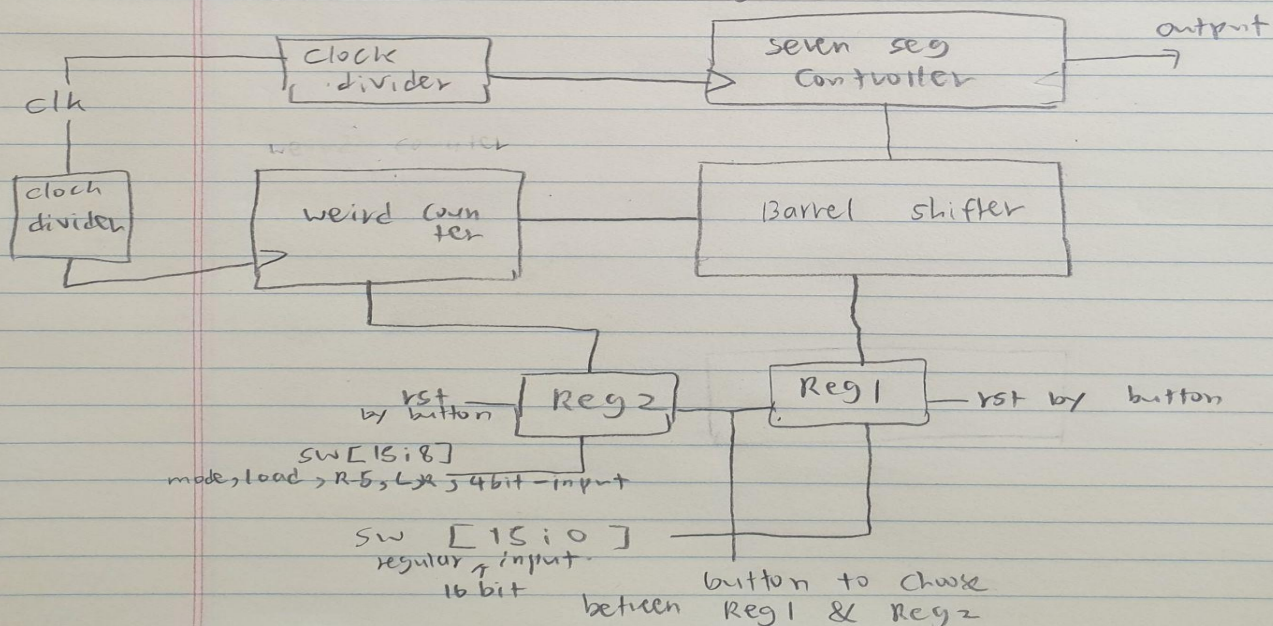 output
seven seg
controller
clock
divider
clk
clock
divider
weird coun
ter
Barrel shifter
rst
by button
Reg 2
Reg 1
rst by button
SW [15:8]
mode, load, R-S, L,R, 4bit-input
SW [15:0]
regular input
16 bit
button to choose
between Reg1 & Reg2